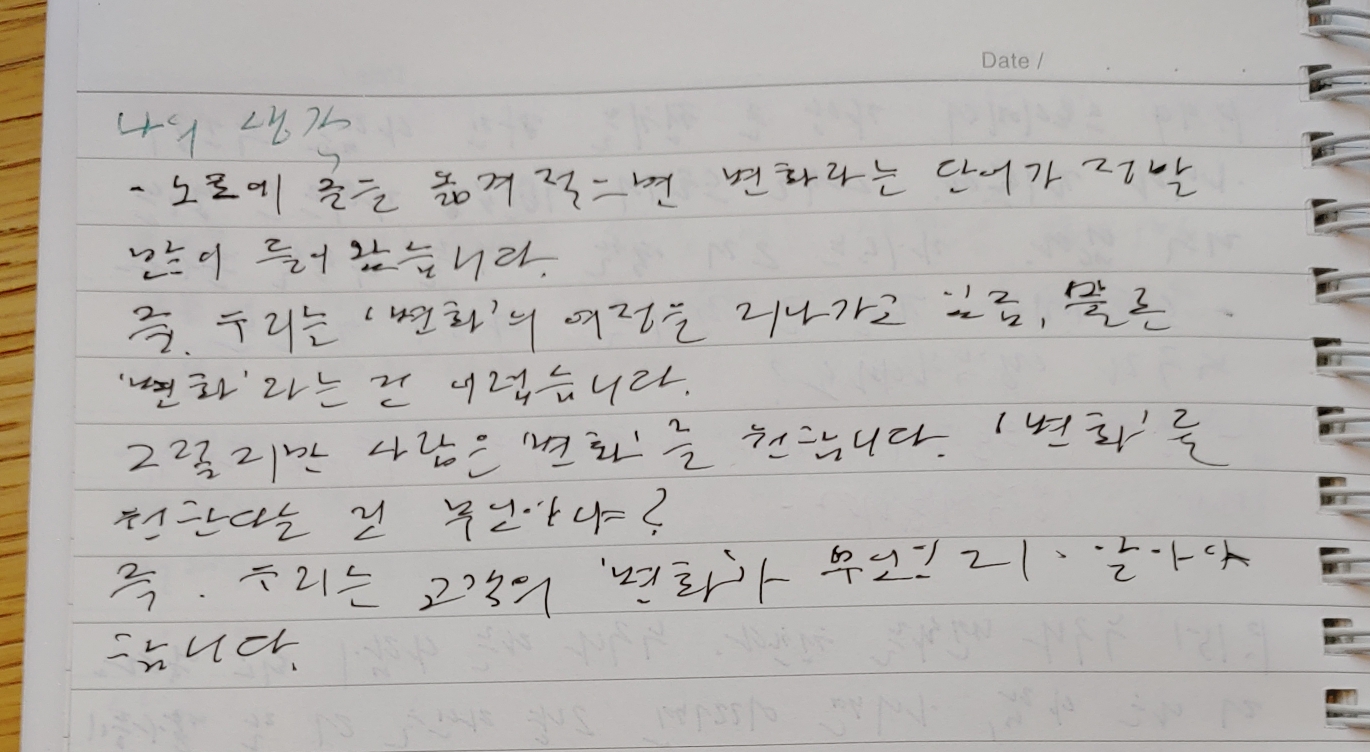 Date /
나의 생각
- 노트에 글을 옮겨 적으면 변화라는 단어가 정말
많이 들어 왔습니다.
즉, 우리는 '변화'의 여정을 지나가고 있음, 물론
'변화'라는 건 어렵습니다.
그렇지만 사람은 '변화'를 원합니다. '변화'를
원한다는 건 무엇이냐?
즉. 우리는 고객의 '변화'가 무엇인지. 알아야
합니다.